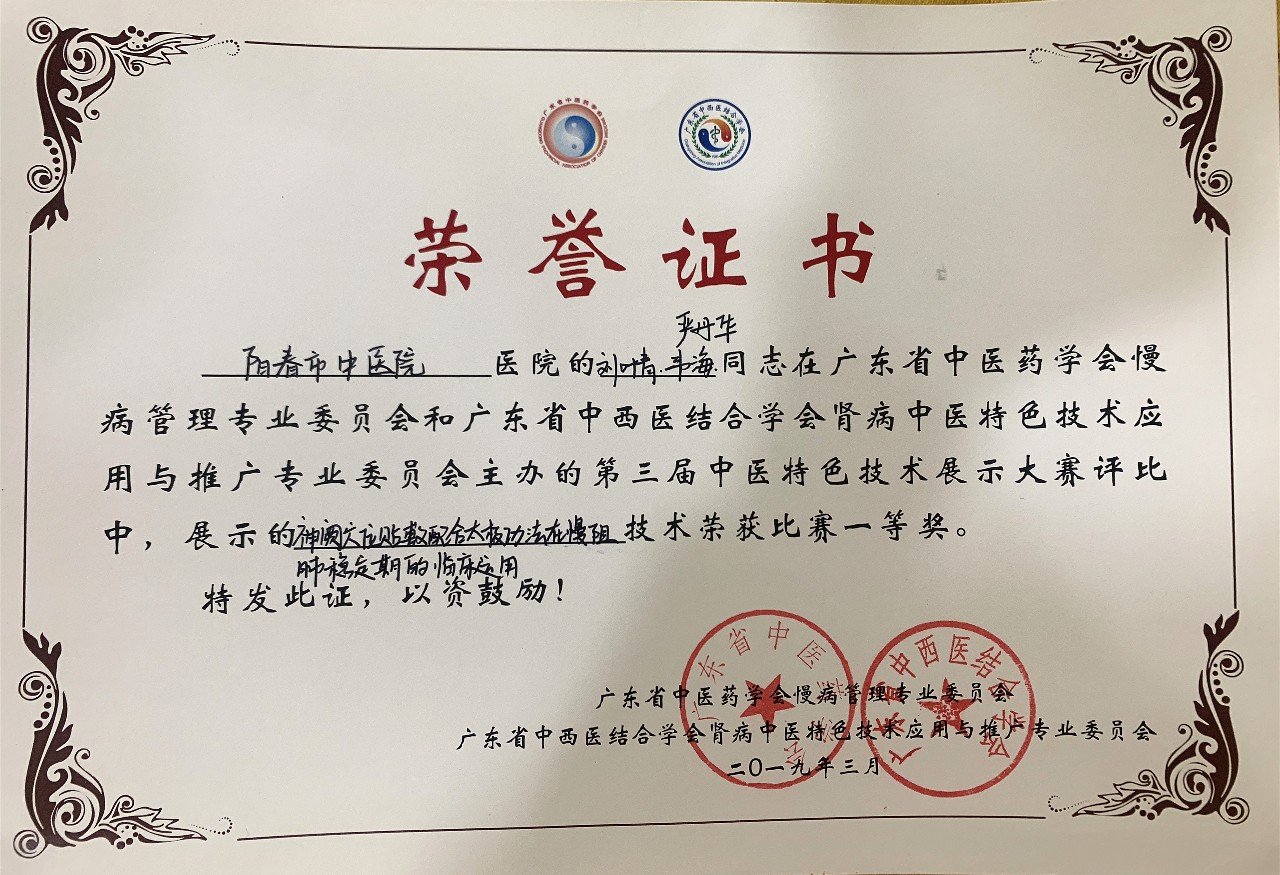 广东省中医药学会
GUANGDONG PROVINCIAL ASSOCIATION OF CHINESE MEDICINE
广东省中西医结合学会
Guangdong Association of Integrative Medicine
荣誉证书
严丹华
阳春市中医院医院的刘叶青、韦海同志在广东省中医药学会慢
病管理专业委员会和广东省中西医结合学会肾病中医特色技术应
用与推广专业委员会主办的第三届中医特色技术展示大赛评比
中，展示的神阙穴位贴敷配合太极功法在慢阻技术荣获比赛一等奖。
肺稳定期的临床运用
特发此证，以资鼓励！
广东省中医药学会
广东省中西医结合学会
广东省中医药学会慢病管理专业委员会
广东省中西医结合学会肾病中医特色技术应用与推广专业委员会
二〇一九年三月